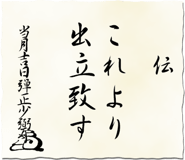 伝
これより
出立致す
当月吉日弾正少弼